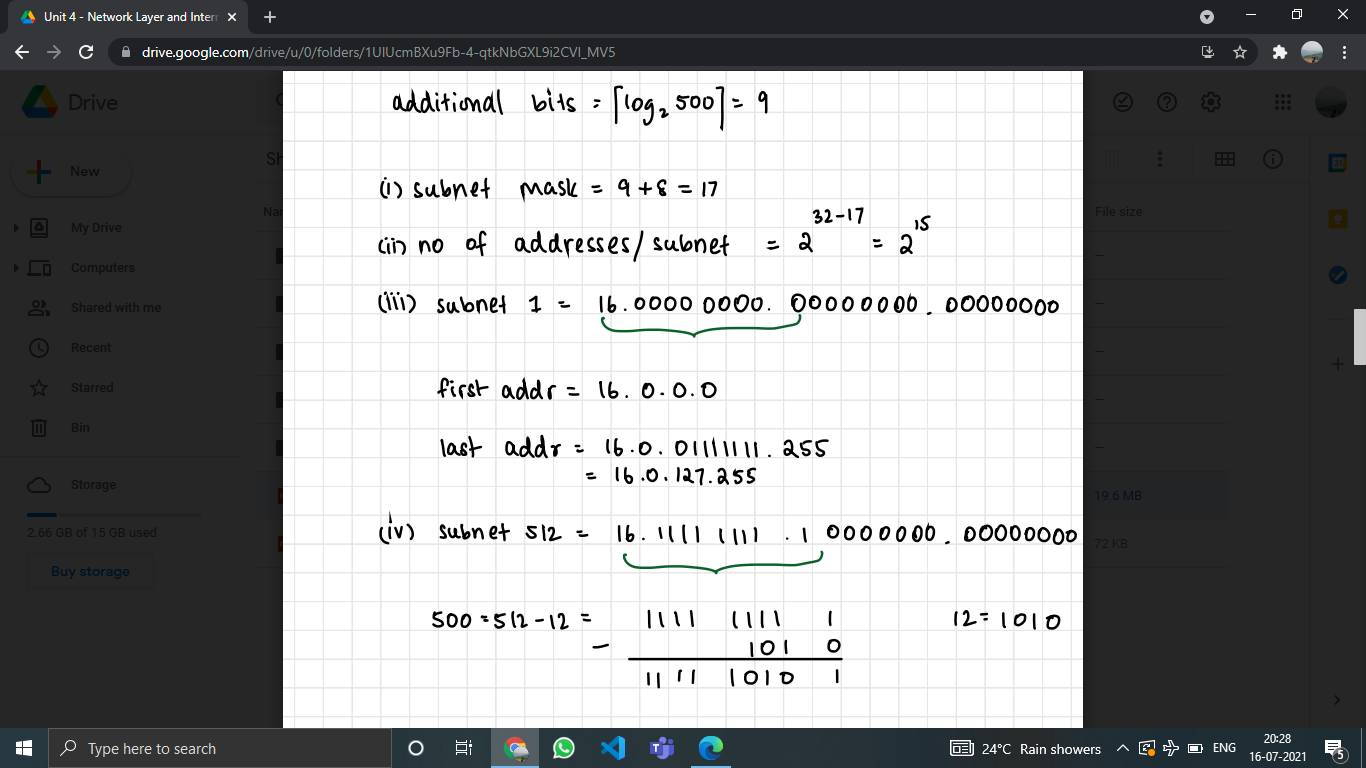 Unit 4 - Network Layer and Intern
drive.google.com/drive/u/0/folders/1UlUcmBXu9Fb-4-qtkNbGXL9i2CVl_MV5
Drive
New
My Drive
Computers
Shared with me
Recent
Starred
Bin
Storage
2.66 GB of 15 GB used
Buy storage
Sh
Nar
File size
19.6 MB
72 KB
additional bits = ⌈log₂ 500⌉ = 9
(i) subnet mask = 9 + 8 = 17
(ii) no of addresses/subnet = 2^(32-17) = 2^15
(iii) subnet 1 = 16.0000 0000. 00000000 . 00000000
first addr = 16. 0.0.0
last addr = 16.0. 01111111. 255
= 16.0.127.255
(iv) subnet 512 = 16. 1111 1111 . 1 0000000. 00000000
500 = 512 - 12 = 1111 1111 1 12 = 1010
- 101 0
1111 1010 1
Type here to search
24°C Rain showers
ENG
20:28
16-07-2021
5